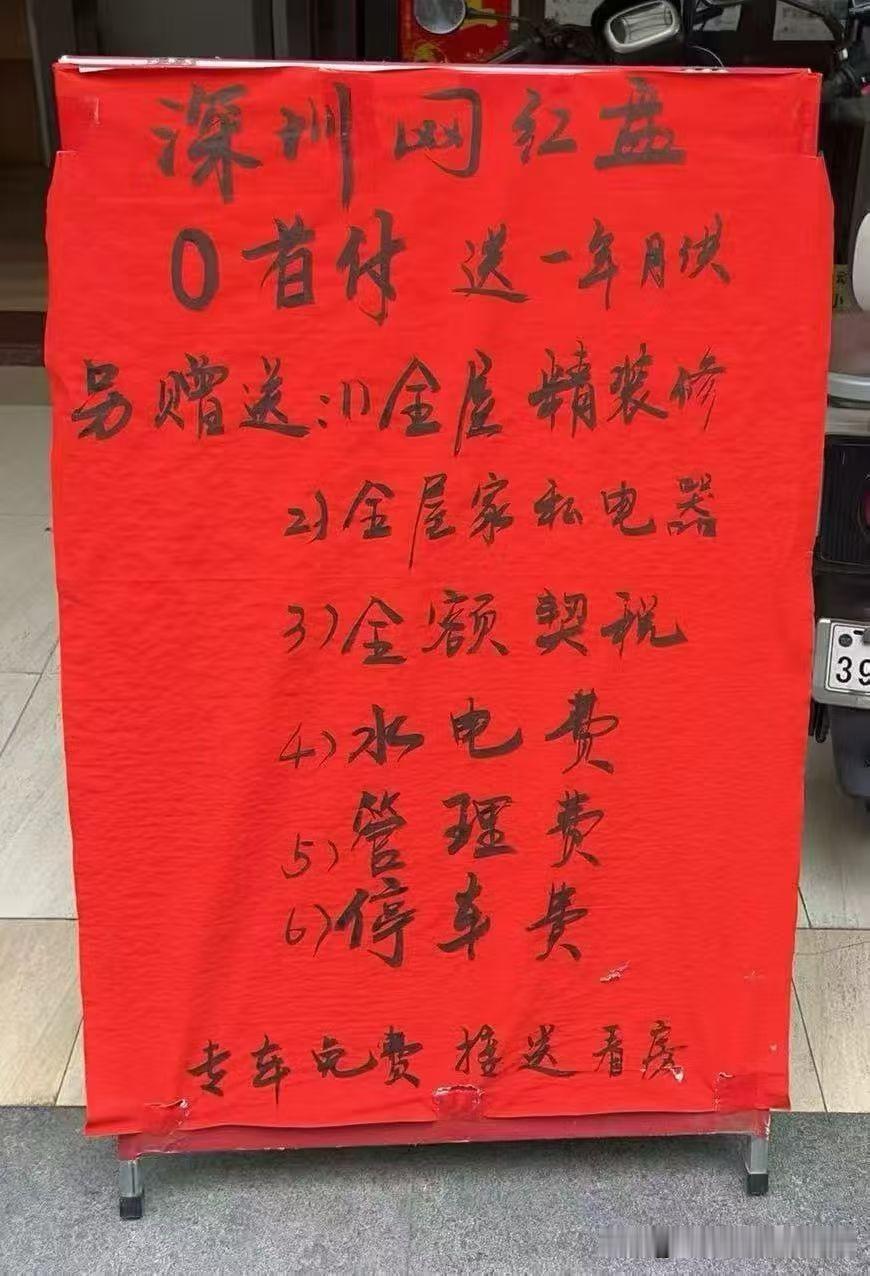 深圳网红盘
0首付 送一年月供
另赠送:1)全屋精装修
2)全屋家私电器
3)全额契税
4)水电费
5)管理费
6)停车费
专车免费接送看房
39